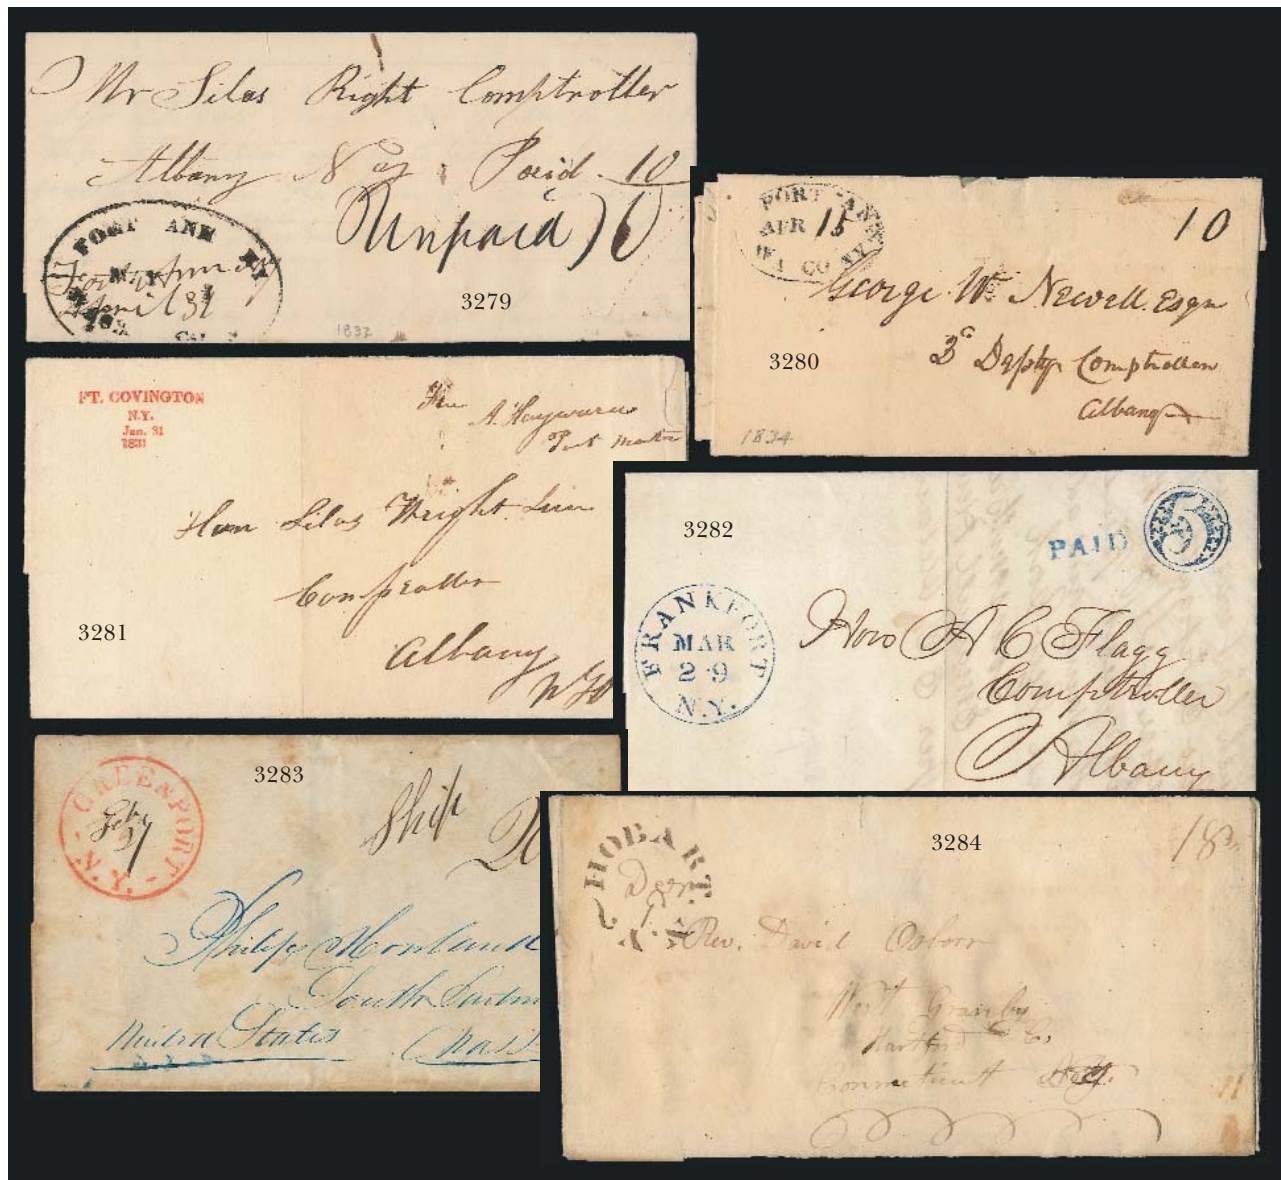 Mr Silas Right Comptroller
Albany N Paid. 10
Unpaid) 6
FORT ANN NY
April 31
3279
1832
FORT ANN
APR 15
WA CO NY
10
George W. Newell. Esqr
3280
Depty Comptroller
Albany
1834
FT. COVINGTON
N.Y.
Jan. 31
1831
Free
A. Hayward
Post Master
Hon Silas Wright Junr
Comptroller
3281
Albany
NY
3282
PAID 5
FRANKFORT
MAR
29
N.Y.
Hon A C Flagg
Comptroller
Albany
3283
GREENPORT - N.Y. -
Feby
27
Ship
Philip
South
United States (Mass
3284
HOBART N.Y.
18
Rev. David Osborn
West Granby
Hartford Co.
Connecticutt